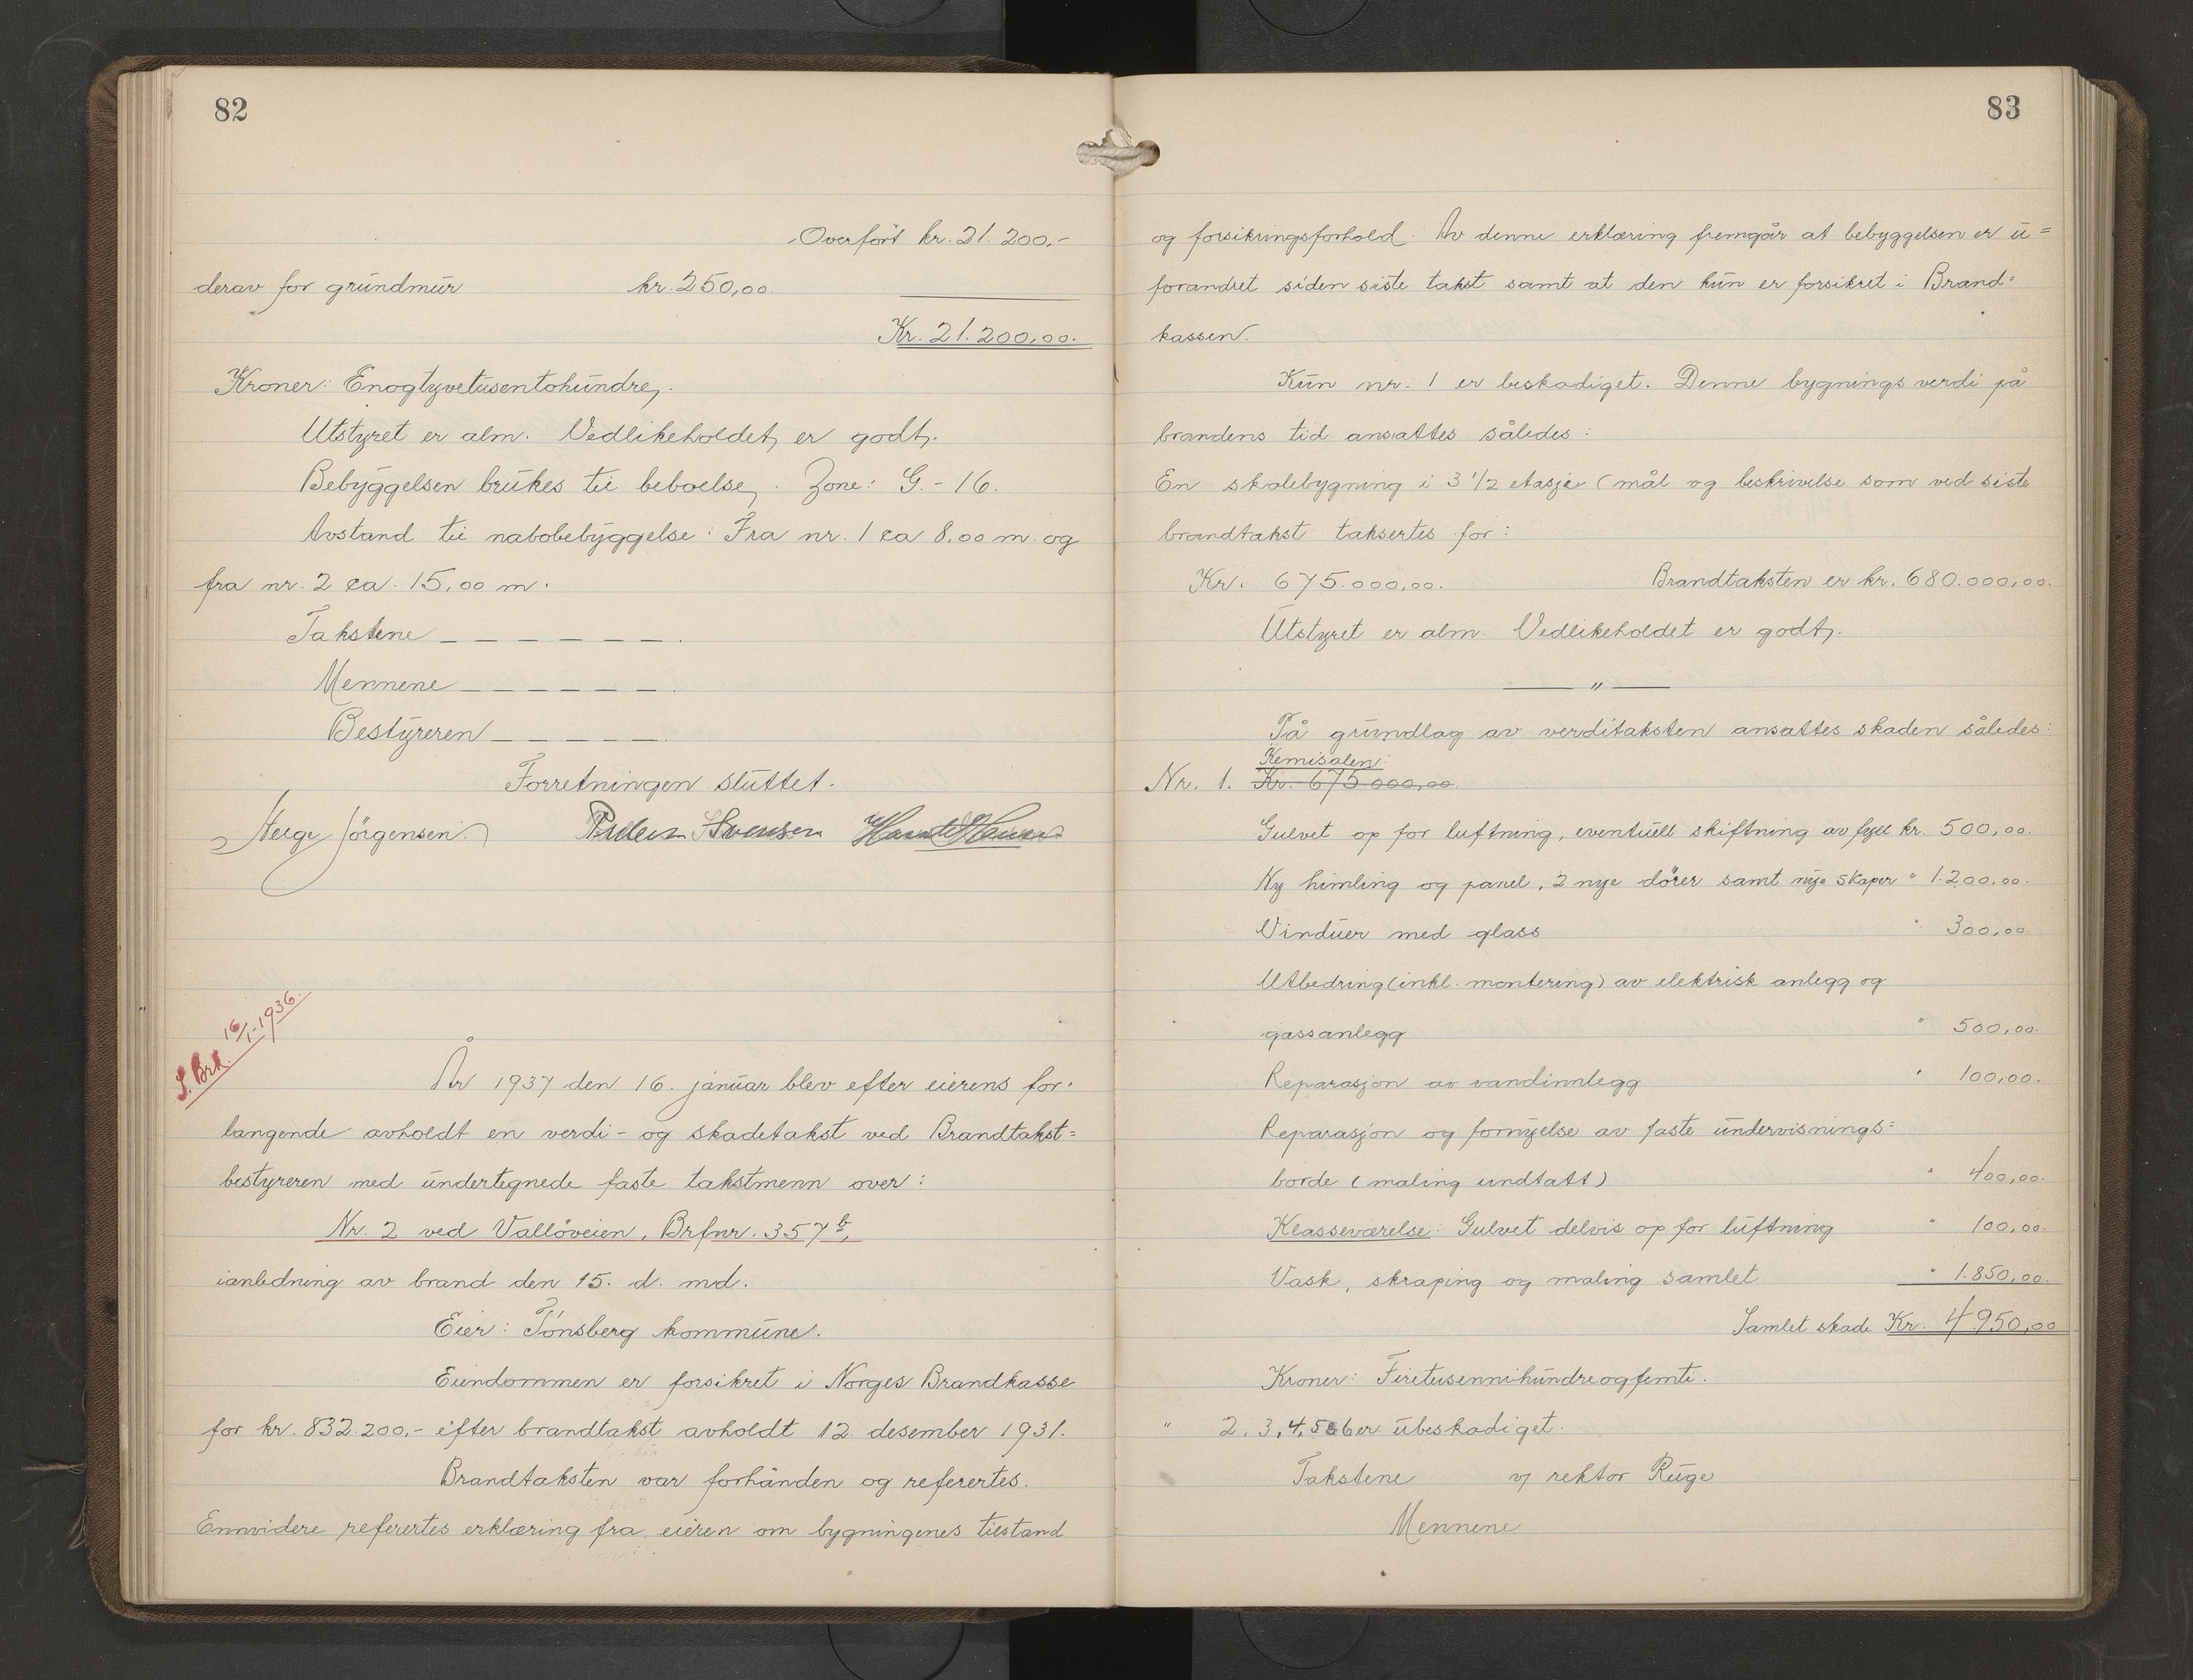 82
Overført kr. 21.200,-
derav for grundmur kr. 250,00.
Kr. 21.200,00.
Kroner: Enogtyvetusentohundre,.
Utstyret er alm. Vedlikeholdet er godt.
Bebyggelsen brukes til beboelse. Zone: G.-16.
Avstand til nabobebyggelse: Fra nr. 1 ca 8,00 m. og
fra nr. 2 ca. 15,00 m.
Takstene — — — — — —.
Mennene — — — — — —.
Bestyreren — — — — —.
Forretningen sluttet.
Helge Jörgensen. Peder Svensen
S. Brk. 16/1-1936.
År 1937 den 16. januar blev efter eierens for-
langende avholdt en verdi- og skadetakst ved Brandtakst=
bestyreren med undertegnede faste takstmenn over:
Nr. 2 ved Vallöveien, Brfnr. 357 b,
ianledning av brand den 15. d. md.
Eier: Tönsberg kommune.
Eiendommen er forsikret i Norges Brandkasse
for kr. 832.200,- efter brandtakst avholdt 12. desember 1931.
Brandtaksten var forhånden og referertes.
Ennvidere referertes erklæring fra eieren om bygningenes tilstand
83
og forsikringsforhold. Av denne erklæring fremgår at bebyggelsen er u=
forandret siden siste takst samt at den kun er forsikret i Brand=
kassen.
Kun nr. 1 er beskadiget. Denne bygnings verdi på
brandens tid ansattes således:
En skolebygning i 3 1/2 etasje (mål og beskrivelse som ved siste
brandtakst taksertes for:
Kr. 675.000,00. Brandtaksten er kr. 680.000,00.
Utstyret er alm. Vedlikeholdet er godt.
— " —
På grundlag av verditaksten ansattes skaden således:
Kemisalen:
Nr. 1. Kr. 675.000,00
Gulvet op for luftning, eventuell skiftning av fyll kr. 500,00.
Ny himling og panel, 2 nye dører samt nye skaper " 1.200,00.
Vinduer med glass " 300,00.
Utbedring (inkl. montering) av elektrisk anlegg og
gassanlegg " 500,00.
Reparasjon av vandinnlegg " 100,00.
Reparasjon og fornyelse av faste undervisnings=
borde (maling undtatt) " 400,00.
Klasseværelse: Gulvet delvis op for luftning " 100,00.
Vask, skraping og maling samlet " 1.850,00.
Samlet skade Kr. 4.950,00
Kroner: Firetusennihundreogfemti.
" 2, 3, 4, 5 & 6 er ubeskadiget.
Takstene v/ rektor Ruge
Mennene